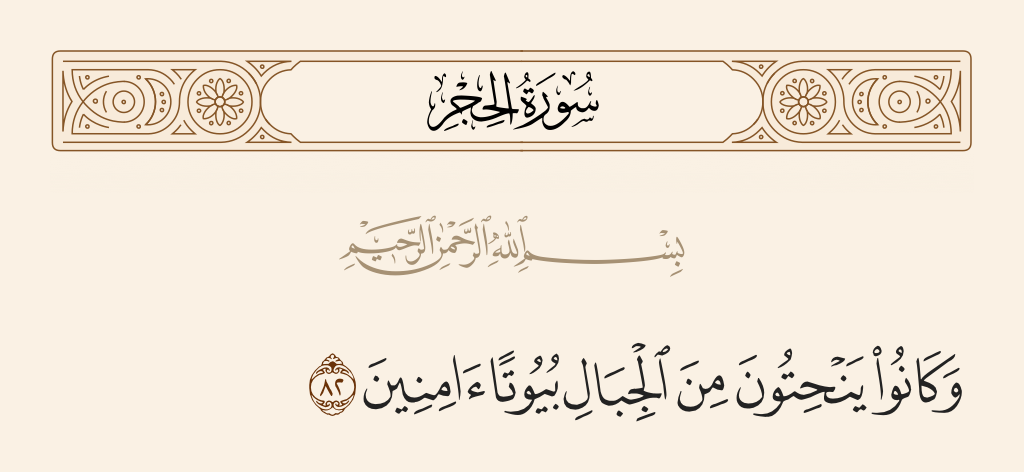 سُورَةُ الحِجْرِ
بِسْمِ ٱللَّهِ ٱلرَّحْمَٰنِ ٱلرَّحِيمِ
وَكَانُوا۟ يَنْحِتُونَ مِنَ ٱلْجِبَالِ بُيُوتًا ءَامِنِينَ ٨٢